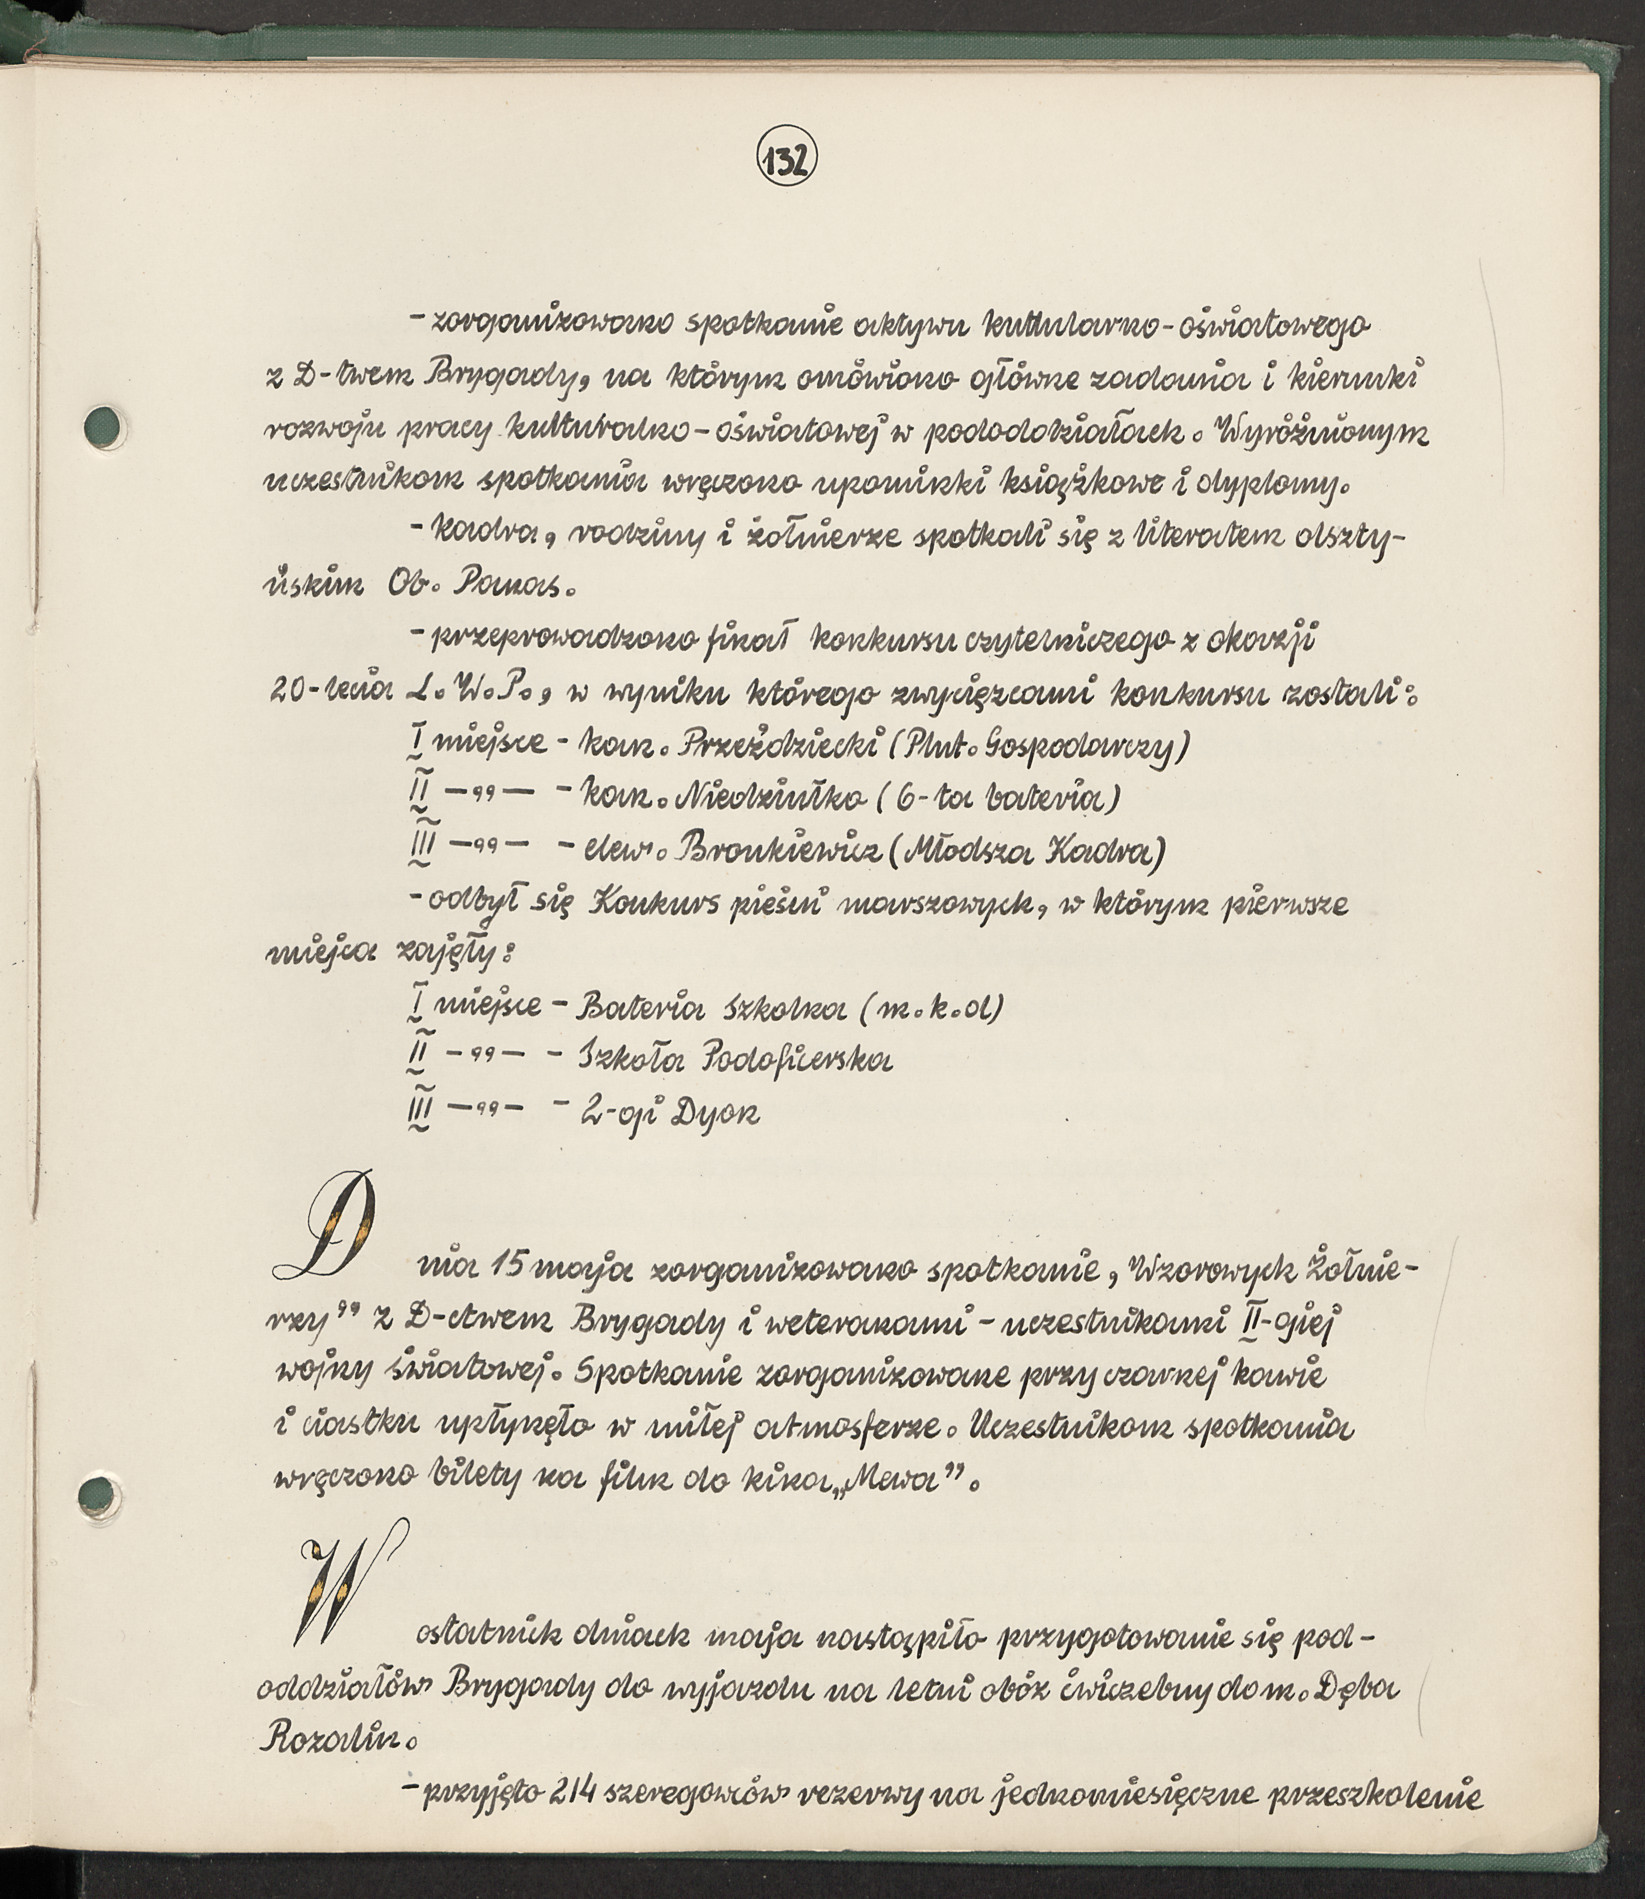 132
- zorganizowano spotkanie aktywu kulturarno-oświatowego
z D-twem Brygady, na którym omówiono główne zadania i kierunki
rozwoju pracy kulturalno-oświatowej w pododdziałach. Wyróżnionym
uczestnikom spotkania wręczono upominki książkowe i dyplomy.
- kadra, rodziny i żołnierze spotkali się z literatem olszty-
ńskim Ob. Panas.
- przeprowadzono finał konkursu czytelniczego z okazji
20-lecia L.W.P., w wyniku którego zwycięzcami konkursu zostali:
I miejsce - kan. Przeździecki (Plut. Gospodarczy)
II —„— - kan. Niedziułka (6-ta bateria)
III —„— - elew. Bronkiewicz (Młodsza Kadra)
- odbył się Konkurs pieśni marszowych, w którym pierwsze
miejca zajęły:
I miejsce - Bateria Szkolna (m.k.d)
II —„— - Szkoła Podoficerska
III —„— - 2-gi Dyon
Dnia 15 maja zorganizowano spotkanie , Wzorowych Żołnie-
rzy” z D-ctwem Brygady i weteranami - uczestnikami II-giej
wojny światowej. Spotkanie zorganizowane przy czarnej kawie
i ciastku upłynęło w miłej atmosferze. Uczestnikom spotkania
wręczono bilety na film do kina „Mewa”.
W ostatnich dniach maja nastąpiło przygotowanie się pod-
oddziałów Brygady do wyjazdu na letni obóz ćwiczebny do m. Dęba
Rozalin.
- przyjęto 214 szeregowców rezerwy na jednomiesięczne przeszkolenie